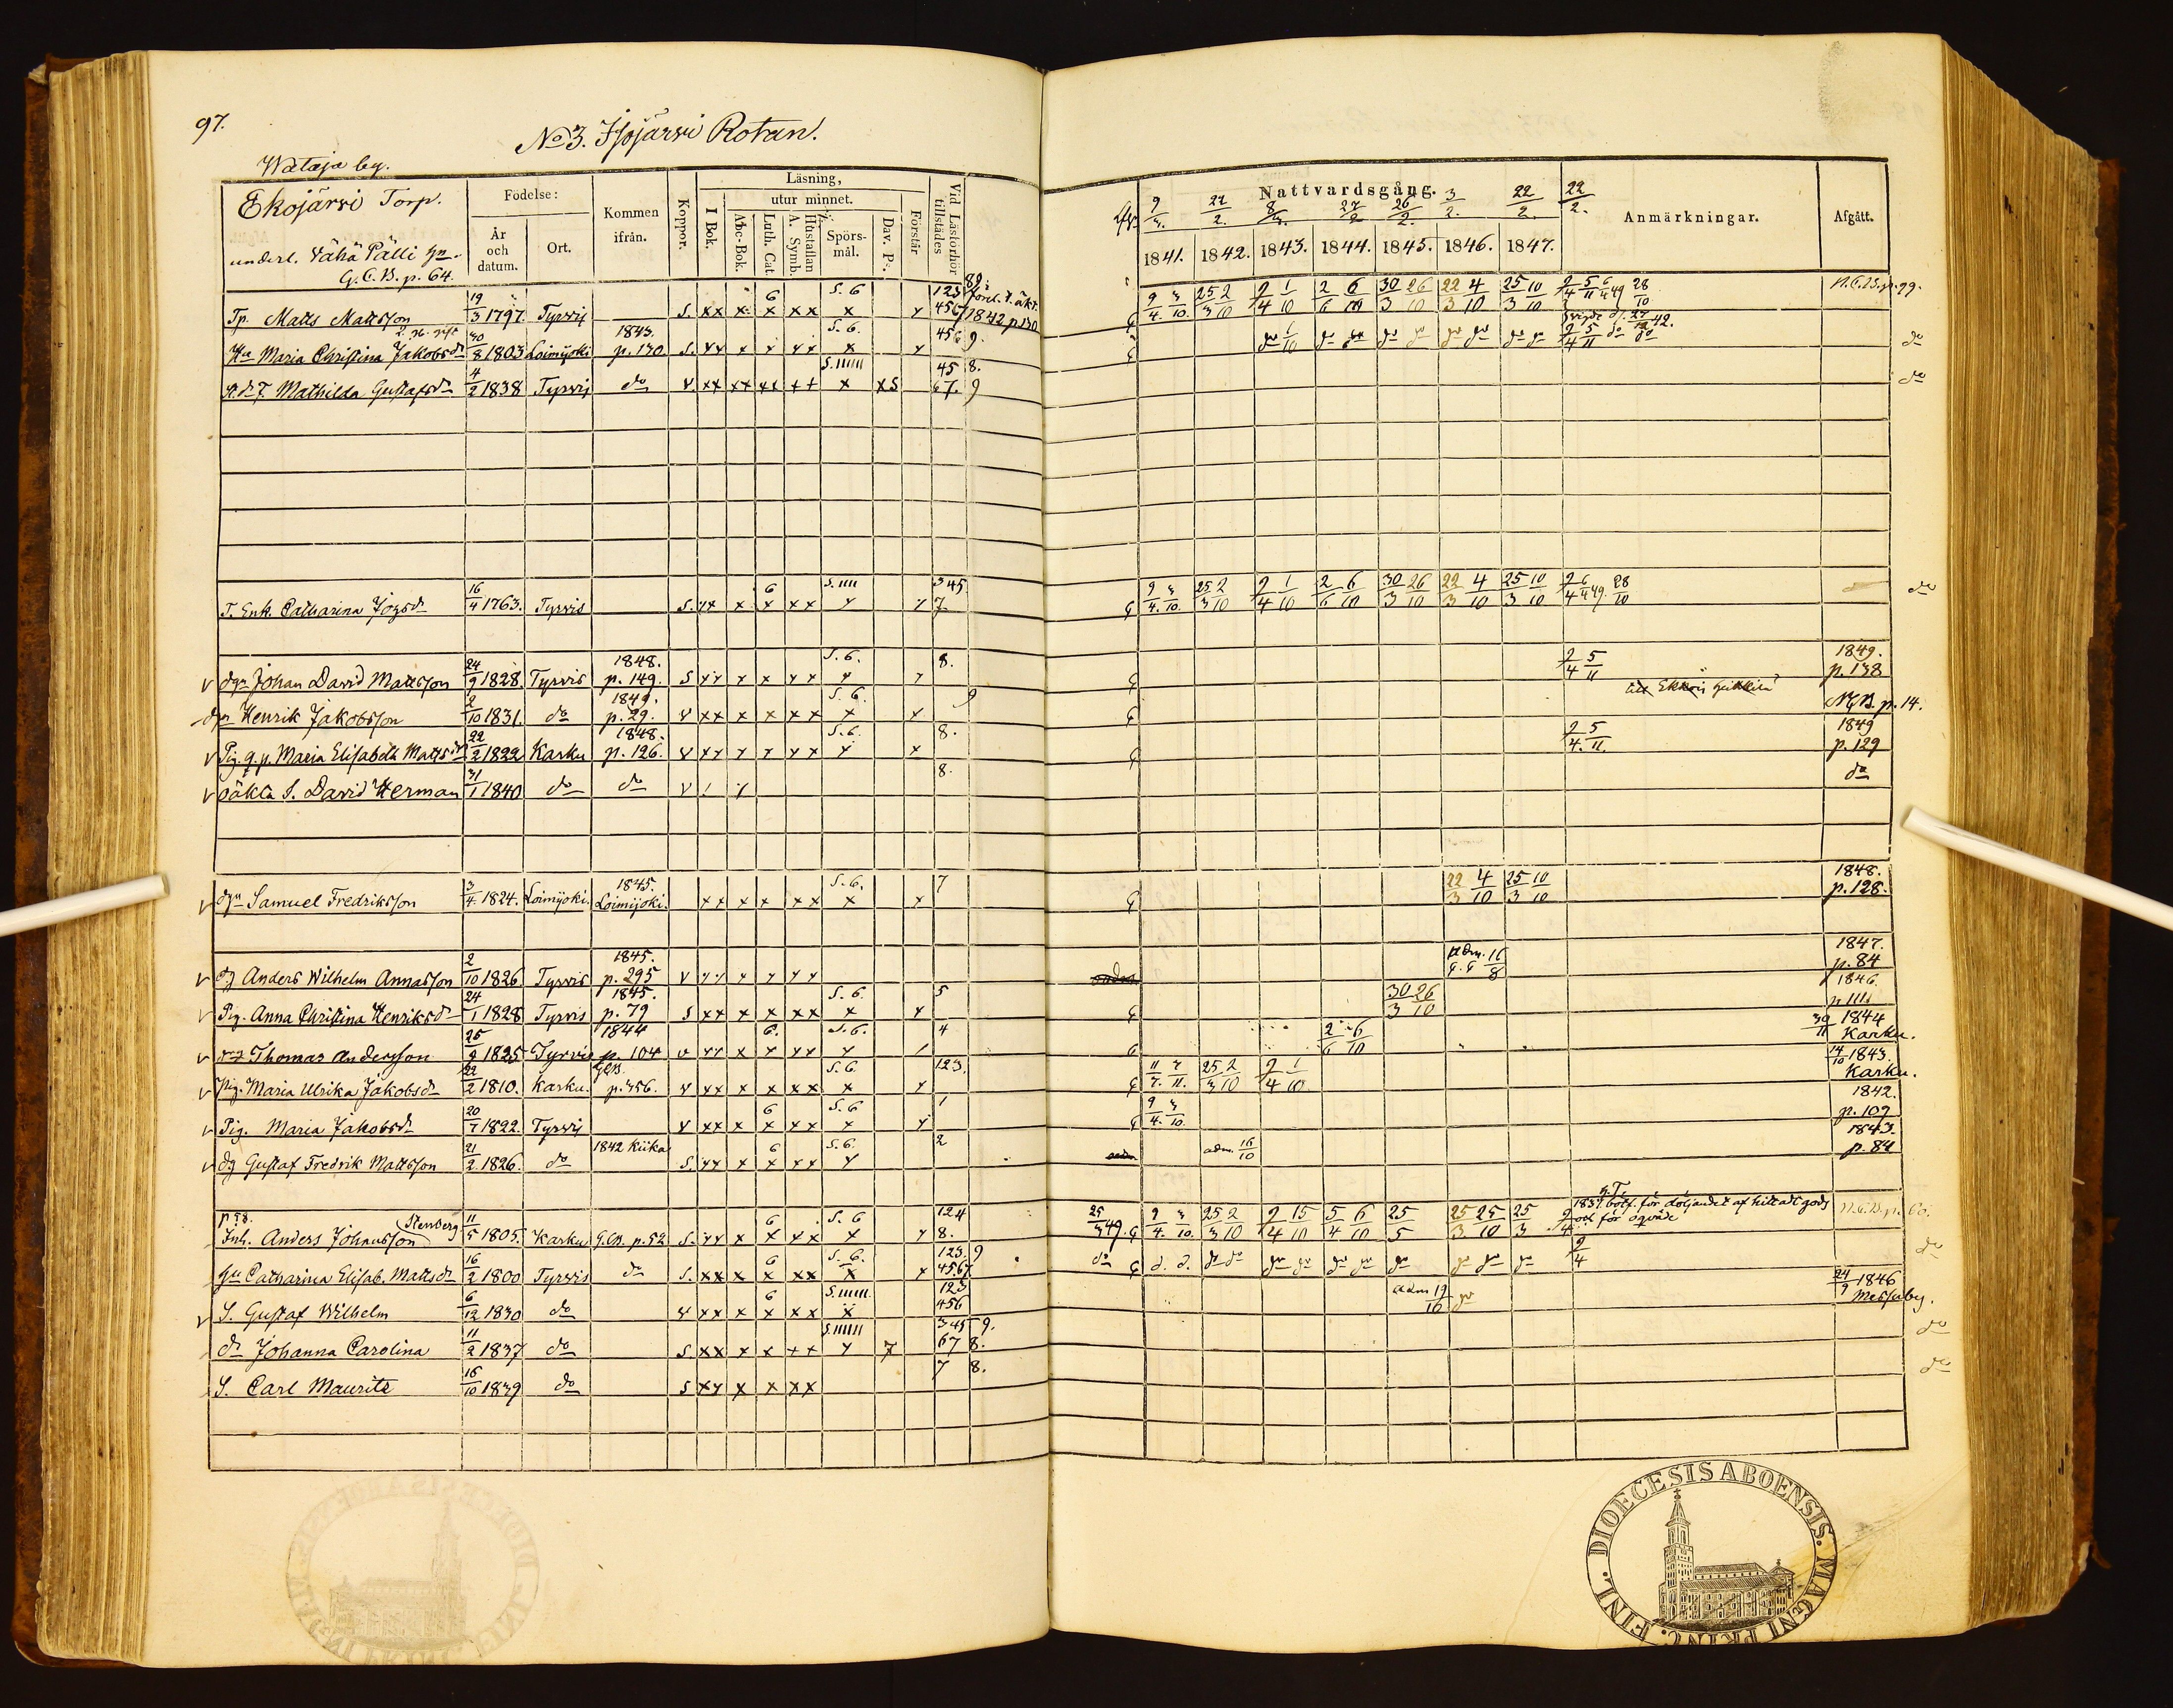 97.
No 3. Isojärvi Rotan.
Wataja by.
Ekojärvi Torp.
underl. Vähä Pälli
G.C.B. p. 64.
Födelse:
År och datum.
Ort.
Kommen ifrån.
Koppor.
Läsning,
I Bok.
utur minnet.
Abc-Bok.
Luth. Cat.
A. Symb.
Hustaflan
Spörsmål.
Dav. Ps.
Förstår
Vid Läsförhör tillstädes
Nattvardsgång.
9/4. 22/2. 27/2 26/2. 3/2. 22/2. 22/2.
1841. 1842. 1843. 1844. 1845. 1846. 1847.
Anmärkningar.
Afgått.
Tp. Matts Mattsson 19/3 1797. Tyrvis S. xx x x xx S. 6 x 123 456 1842 p 130 9/4. 3/10. 25/3 2/10 2/4 1/10 2/6 6/10 30/3 26/10 22/3 4/10 25/3 10/10 2/4 5/11 28/10 N.C.B. p. 99.
Hu Maria Christina Jakobsdr 2. g. gift 30/8 1803 Loimijoki 1843. p. 130. S. S. 6. x 456 9. do 1/10 do do do do do do do do 2/4 5/11 do do do
Mathilda Gustafsdr 4/2 1838 Tyrvis do v xx xx xx ++ S. x xs 45 67. 8. 9 do
T. Enk. Catharina 16/4 1763. Tyrvis S. 6 S. 345 7 9/4. 3/10. 25/3 2/10 2/4 1/10 2/6 6/10 30/3 26/10 22/3 4/10 25/3 10/10 28/10 do
v dgn Johan David Mattsson 24/9 1828. Tyrvis 1848. p. 149. S S. 6. 8. 2/4 5/11 1849. p. 138
dgn Henrik Jakobsson 2/10 1831. do 1849. p. 29. v xx x x xx S. 6. x 9 till Ekkois Heikkilä N.C.B. p. 14.
v Pig. q.p. Maria Elisabeth Mattsdr 22/2 1822 Karku 1848. p. 126. v S. 6. 8. 2/4. 5/11. 1849 p. 129
v oäkta S. David Herman 31/1 1840 do do v 8. do
v dgn Samuel Fredriksson 3/4. 1824. Loimijoki. 1845. Loimijoki. xx x x xx S. 6. x 7 22/3 4/10 25/3 10/10 1848. p. 128.
v dg Anders Wilhelm Annasson 2/10 1826 Tyrvis 1845. p. 295 v adm. 16/8 1847. p. 84
v Pig. Anna Christina Henriksdr 24/1 1828 Tyrvis 1845. p. 79 S xx x x xx S. 6. x 5 30/3 26/10 1846. p 111
v Thomas Andersson 25/9 1825 Tyrvis 1844 p. 104 v 6. S. 6. 4 2/6 6/10 30/11 1844 Karku.
v Pig. Maria Ulrika Jakobsdr 22/2 1810. Karku. GCB. p. 356. v xx x x xx S. 6. x 123. 25/3 2/10 2/4 1/10 14/10 1843. Karku.
v Pig. Maria Jakobsdr 20/7 1822. Tyrvis v xx x 6 x xx S. 6 x 1 9/4. 3/10. 1842. p. 109
v dg Gustaf Fredrik Mattsson 21/2 1826. do 1842 Kiika S 6 S. 6. 2 adm. 16/10 1843. p. 84
Inh. Anders Johansson Stenberg 11/5 1805. Karku G.CB. p. 52 S. 6 S. 6 124 8. 25/3 49. 9/4. 3/10. 25/3 2/10 2/4 15/10 5/4 6/10 25/5 25/3 25/10 25/3 2/4
1837 böt. för döljandet af hittadt gods och för oqväde N.C.B. p. 60.
Hu Catharina Elisab. Mattsdr 16/2 1800 Tyrvis do S. xx x 6 x xx S. 6. x 123. 4567 9 do d. d. do do do do do do do do do do 2/4 do
v S. Gustaf Wilhelm 6/12 1830 do v xx x 6 x xx S. x 123 456 adm 19/10 do 24/9 1846 Messuby.
dr Johanna Carolina 11/2 1837 do S xx x x ++ S. 345 67 9. 8. do
S. Carl Maurits 16/10 1839 do S x x xx 7 8. do
DIOECESIS ABOENSIS. MAGNI PRINC. FINL.